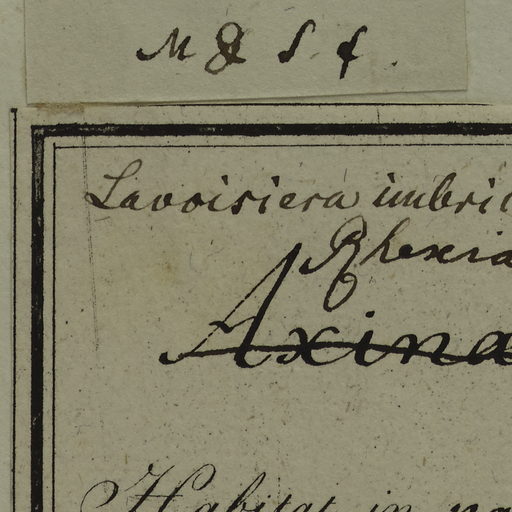 M & S f.
Lavoisiera imbric
Rhexia
Axina
Habitat in